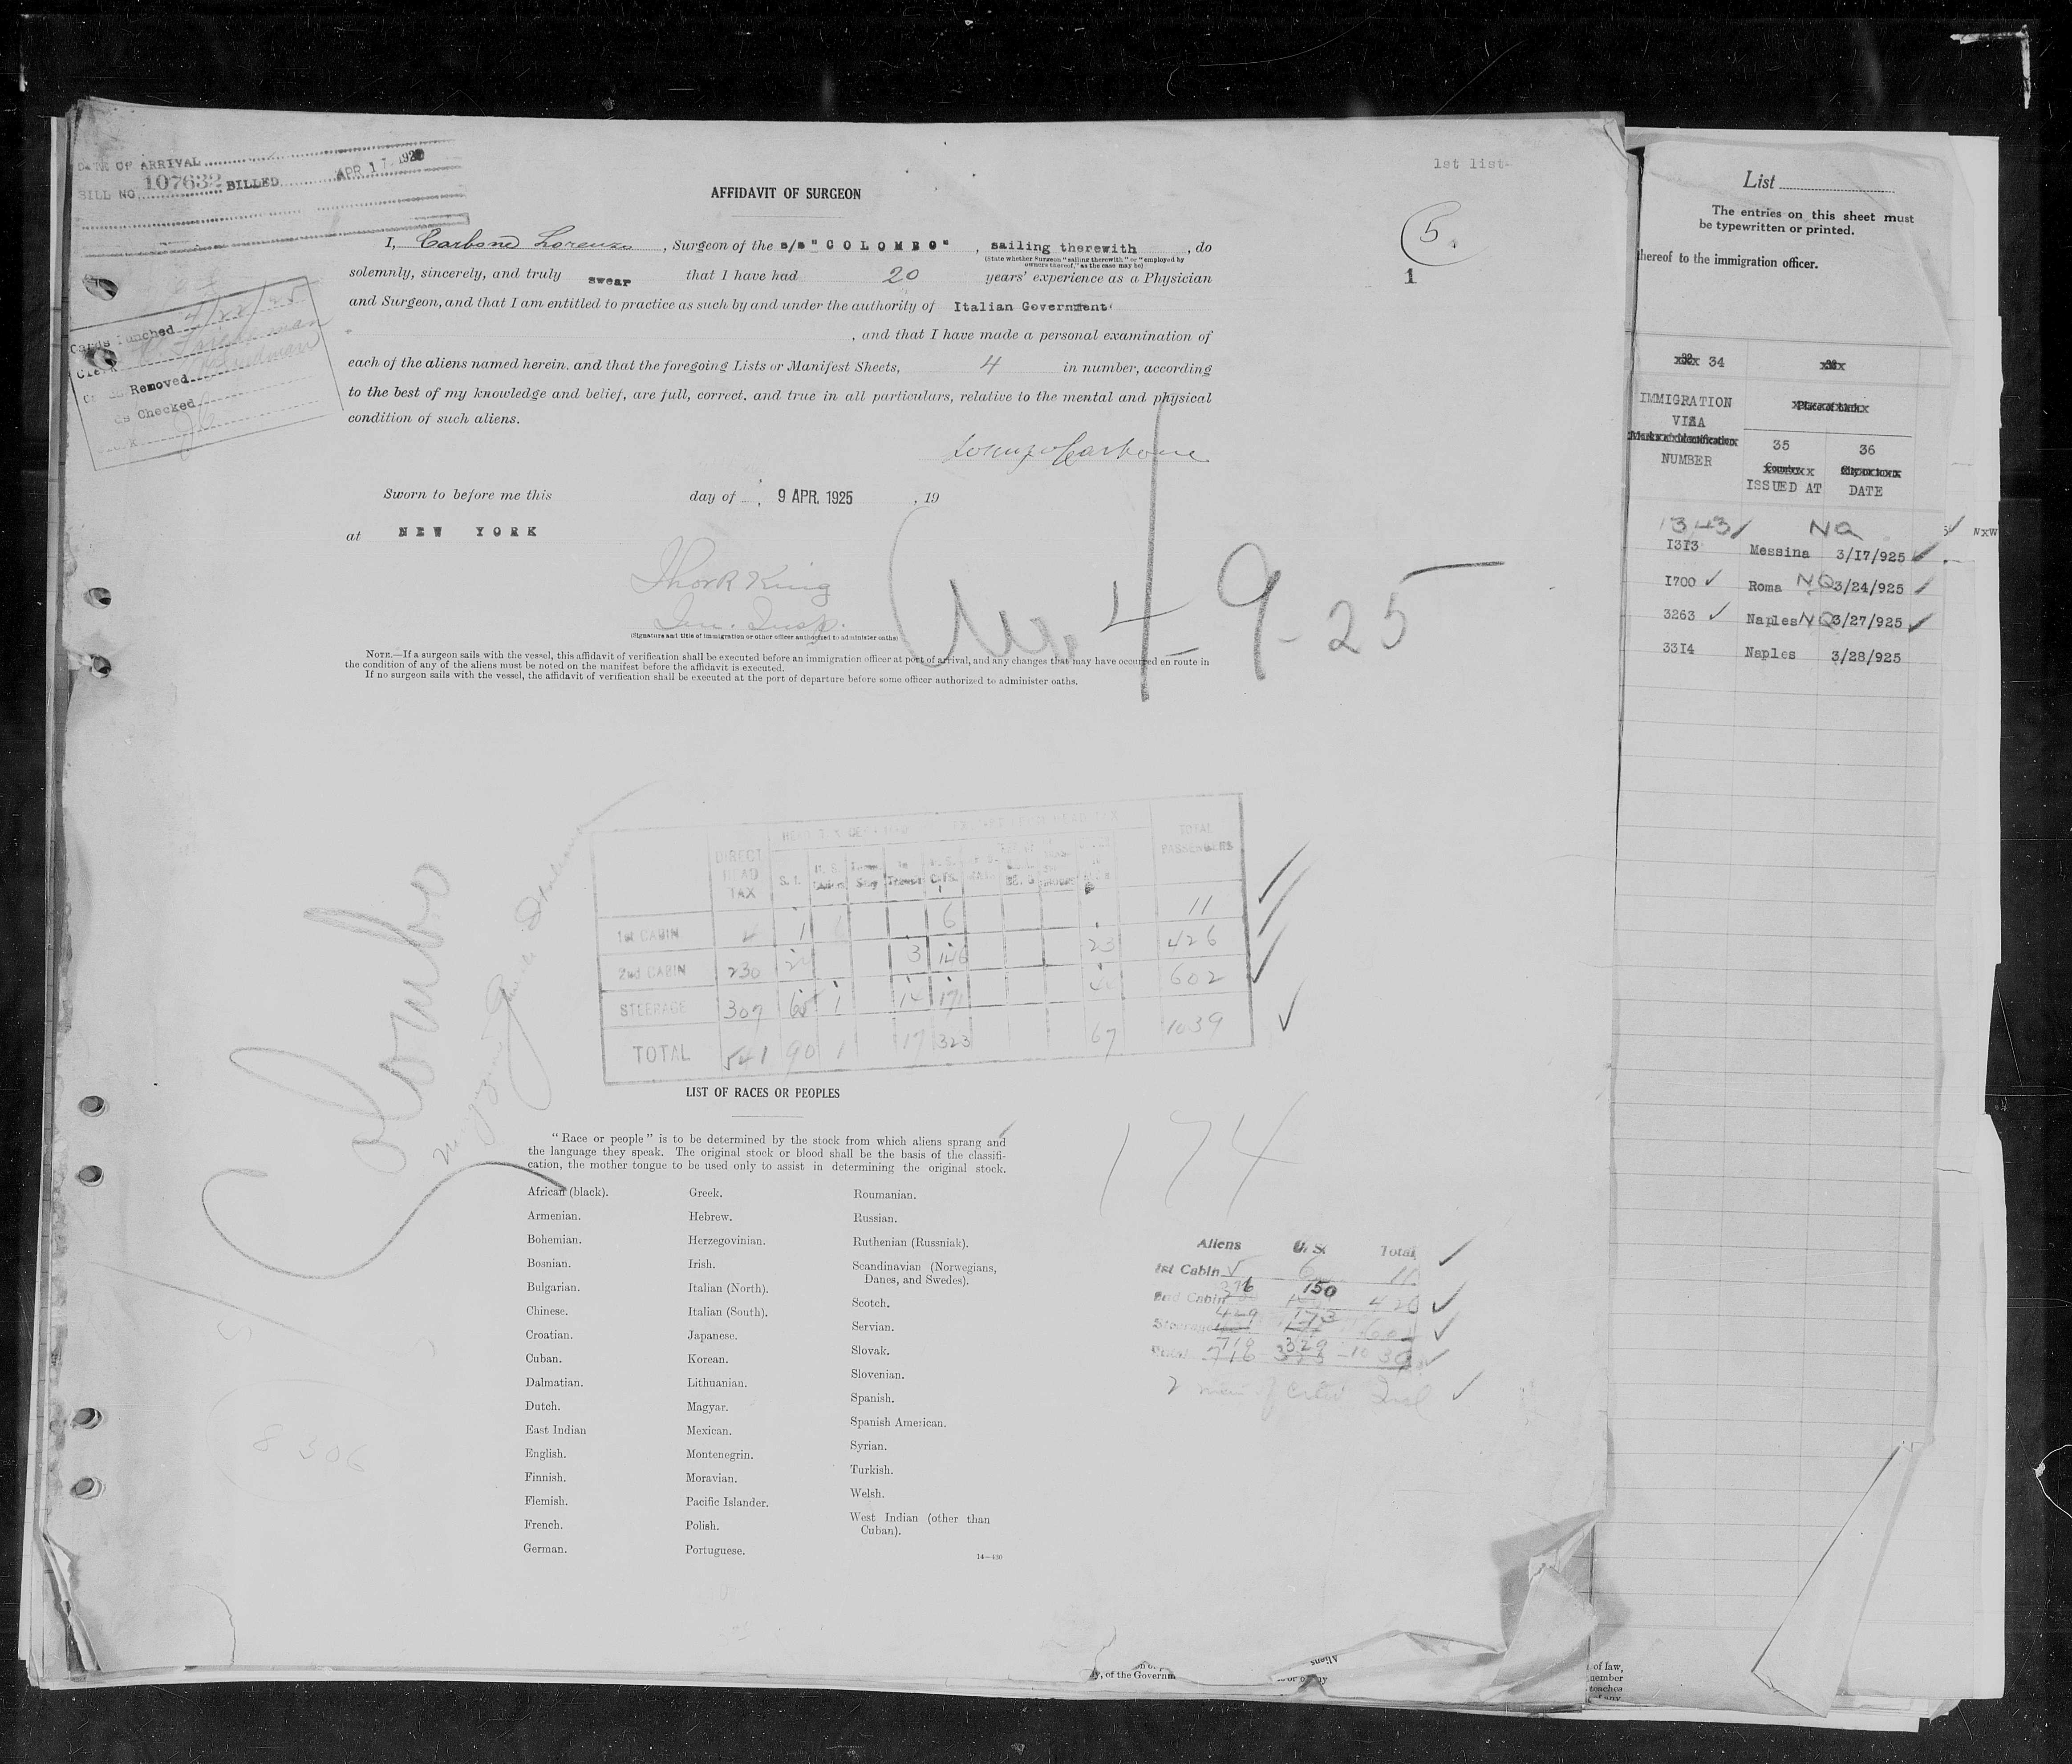 DATE OF ARRIVAL
BILL NO. 107632 BILLED APR 17 192
1st list-
AFFIDAVIT OF SURGEON
5.
1
I, Carbone Lorenzo, Surgeon of the s/s "COLOMBO", sailing therewith, do
(State whether Surgeon "sailing therewith" or "employed by
owners thereof," as the case may be)
solemnly, sincerely, and truly swear that I have had 20 years' experience as a Physician
and Surgeon, and that I am entitled to practice as such by and under the authority of Italian Government
, and that I have made a personal examination of
each of the aliens named herein. and that the foregoing Lists or Manifest Sheets, 4 in number, according
to the best of my knowledge and belief, are full, correct, and true in all particulars, relative to the mental and physical
condition of such aliens.
Cards Punched 4/22/25
Clerk
Removed
ds Checked
Lorenzo Carbone
Sworn to before me this day of 9 APR. 1925, 19
at NEW YORK
Thor R King
Imm. Insp.
(Signature and title of immigration or other officer authorized to administer oaths)
4-9-25
NOTE.—If a surgeon sails with the vessel, this affidavit of verification shall be executed before an immigration officer at port of arrival, and any changes that may have occurred en route in
the condition of any of the aliens must be noted on the manifest before the affidavit is executed.
If no surgeon sails with the vessel, the affidavit of verification shall be executed at the port of departure before some officer authorized to administer oaths.
Colombo
DIRECT HEAD TAX
S. I.
TOTAL PASSENGERS
1st CABIN 1 6 11
2nd CABIN 230 3 146 23 426
STEERAGE 307 65 1 14 171 602
TOTAL 541 90 1 17 323 67 1039
LIST OF RACES OR PEOPLES
"Race or people" is to be determined by the stock from which aliens sprang and
the language they speak. The original stock or blood shall be the basis of the classifi-
cation, the mother tongue to be used only to assist in determining the original stock.
174
African (black).
Armenian.
Bohemian.
Bosnian.
Bulgarian.
Chinese.
Croatian.
Cuban.
Dalmatian.
Dutch.
East Indian
English.
Finnish.
Flemish.
French.
German.
Greek.
Hebrew.
Herzegovinian.
Irish.
Italian (North).
Italian (South).
Japanese.
Korean.
Lithuanian.
Magyar.
Mexican.
Montenegrin.
Moravian.
Pacific Islander.
Polish.
Portuguese.
Roumanian.
Russian.
Ruthenian (Russniak).
Scandinavian (Norwegians,
Danes, and Swedes).
Scotch.
Servian.
Slovak.
Slovenian.
Spanish.
Spanish American.
Syrian.
Turkish.
Welsh.
West Indian (other than
Cuban).
14—430
Aliens U. S. Total
1st Cabin 5 6 11
2nd Cabin 150
429 173
329 1039
8306
y, of the Governm
Aliens
List
The entries on this sheet must
be typewritten or printed.
thereof to the immigration officer.
34
IMMIGRATION
VISA
NUMBER
35
ISSUED AT
36
DATE
1343 NQ
1313 Messina 3/17/925
1700 Roma NQ 3/24/925
3263 Naples NQ 3/27/925
3314 Naples 3/28/925
of law,